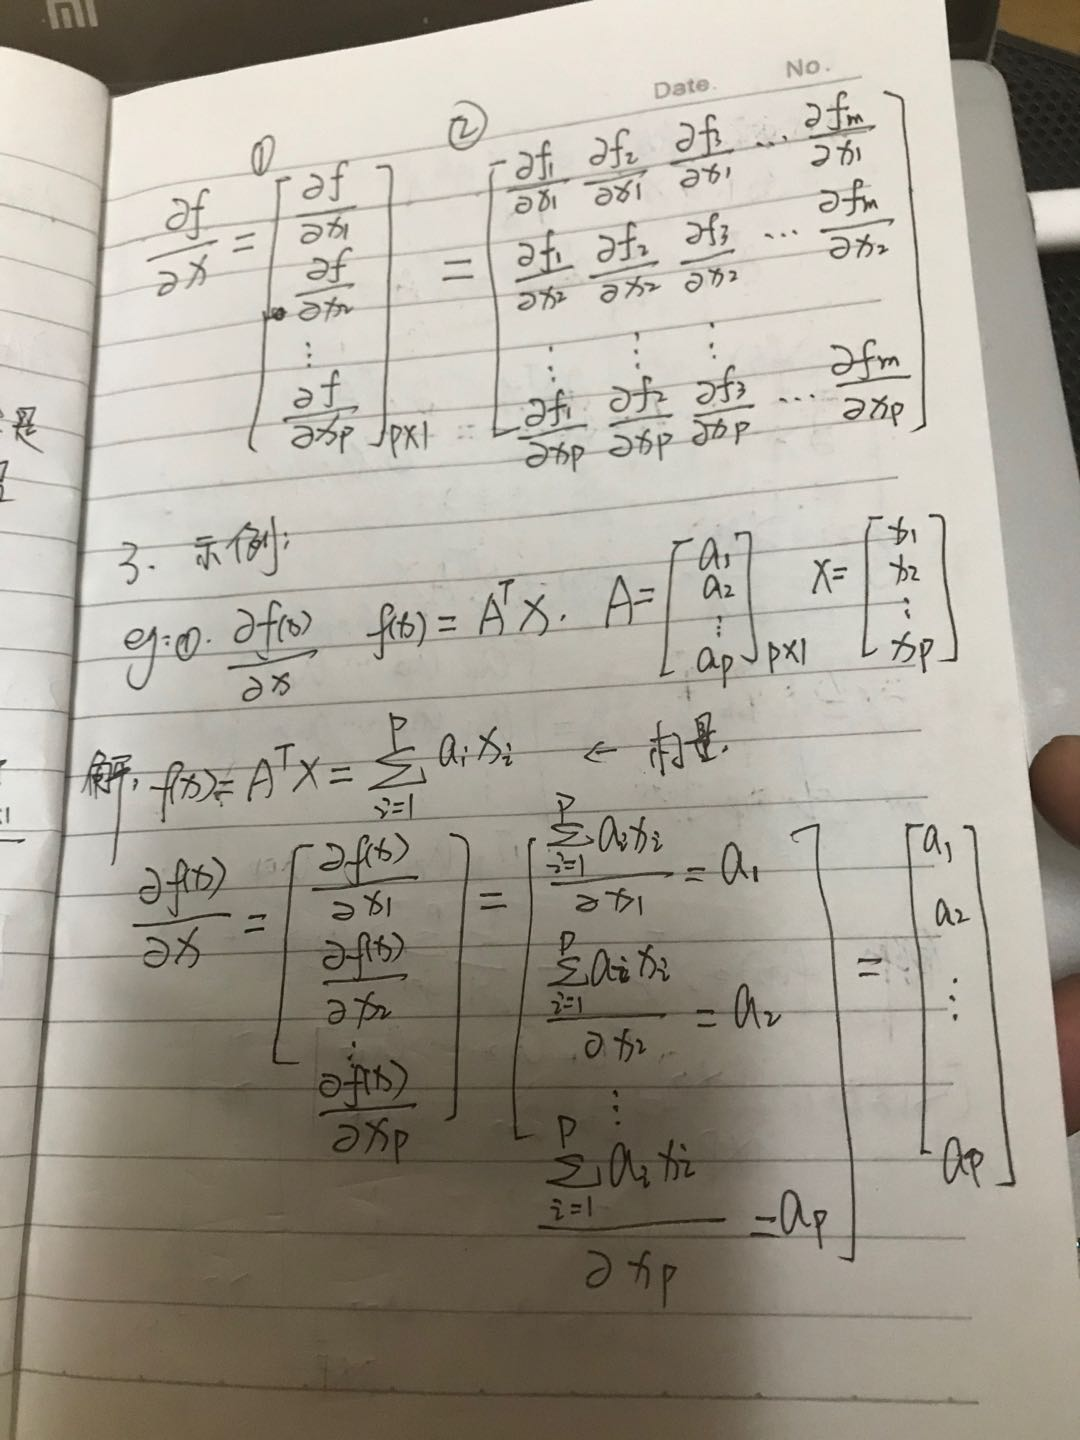 mi
Date. No.
① ②
∂f/∂x = [∂f/∂x1 ∂f/∂x2 ⋮ ∂f/∂xp]p×1 = [∂f1/∂x1 ∂f2/∂x1 ∂f3/∂x1 ⋯ ∂fm/∂x1
∂f1/∂x2 ∂f2/∂x2 ∂f3/∂x2 ⋯ ∂fm/∂x2
⋮ ⋮ ⋮
∂f1/∂xp ∂f2/∂xp ∂f3/∂xp ⋯ ∂fm/∂xp]
3. 示例:
eg:①. ∂f(x)/∂x f(x) = A^T X. A = [a1 a2 ⋮ ap]p×1 X = [x1 x2 ⋮ xp]
解, f(x) = A^T X = ∑_{i=1}^{p} ai xi ← 标量.
∂f(x)/∂x = [∂f(x)/∂x1 ∂f(x)/∂x2 ⋮ ∂f(x)/∂xp] = [∑_{i=1}^{p} ai xi/∂x1 = a1
∑_{i=1}^{p} ai xi/∂x2 = a2
⋮
∑_{i=1}^{p} ai xi/∂xp = ap] = [a1 a2 ⋮ ap]